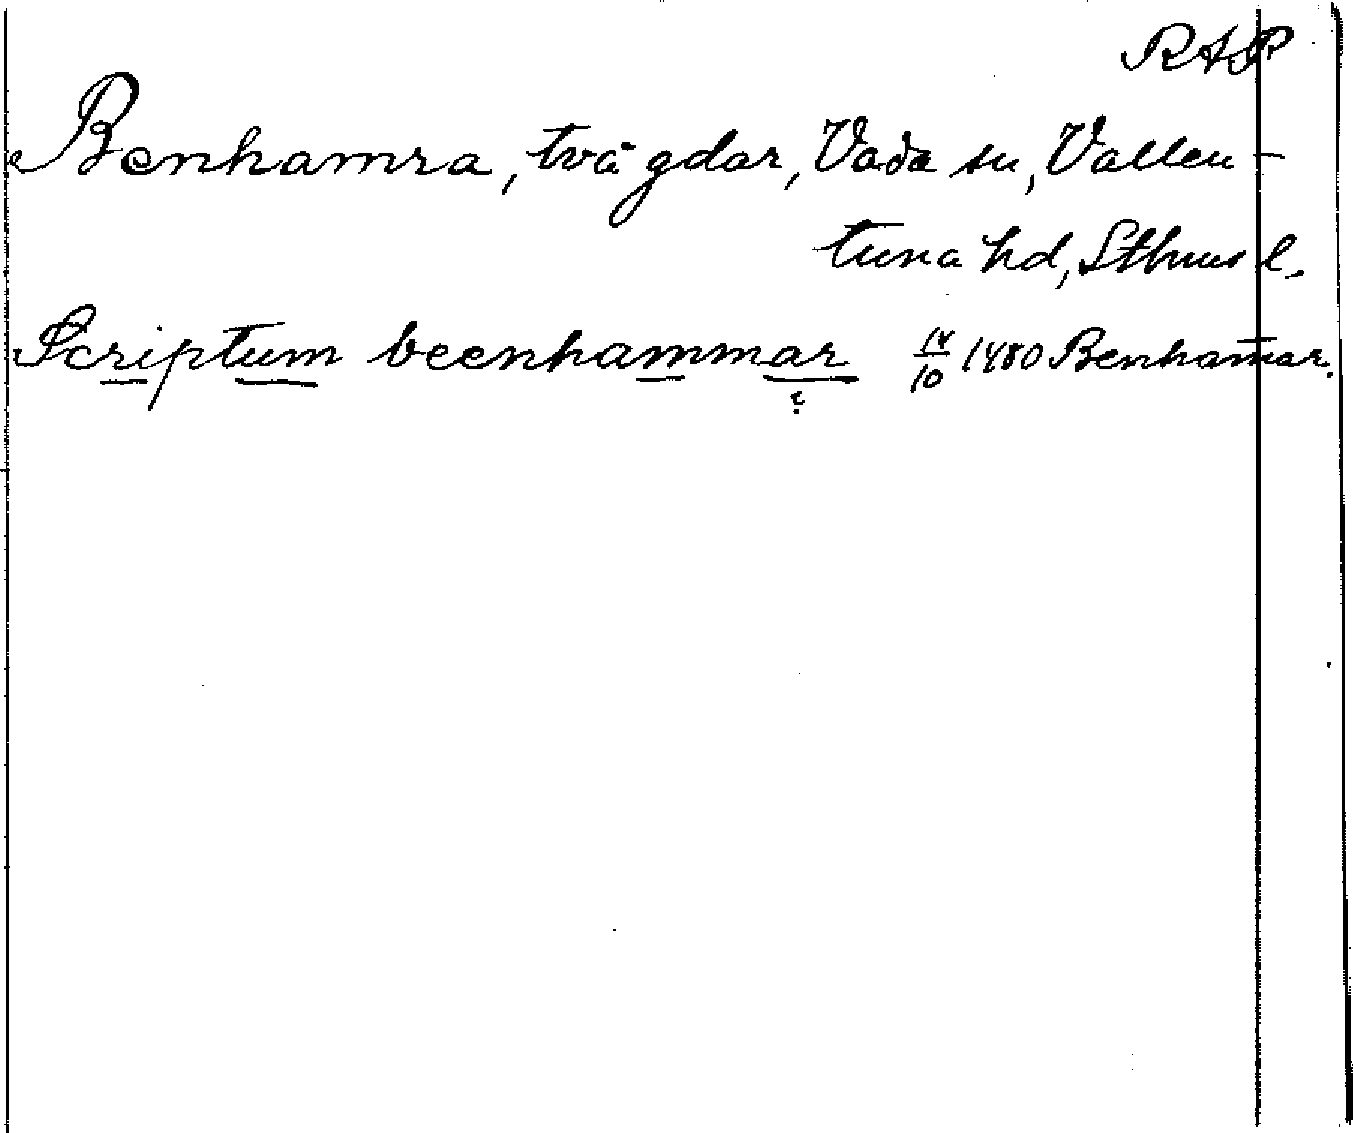 RAP
Benhamra, två gdar, Vada sn, Vallen-
tuna hd, Sthms l.
Scriptum beenhammar 14/10 1480 Benhamar.
?